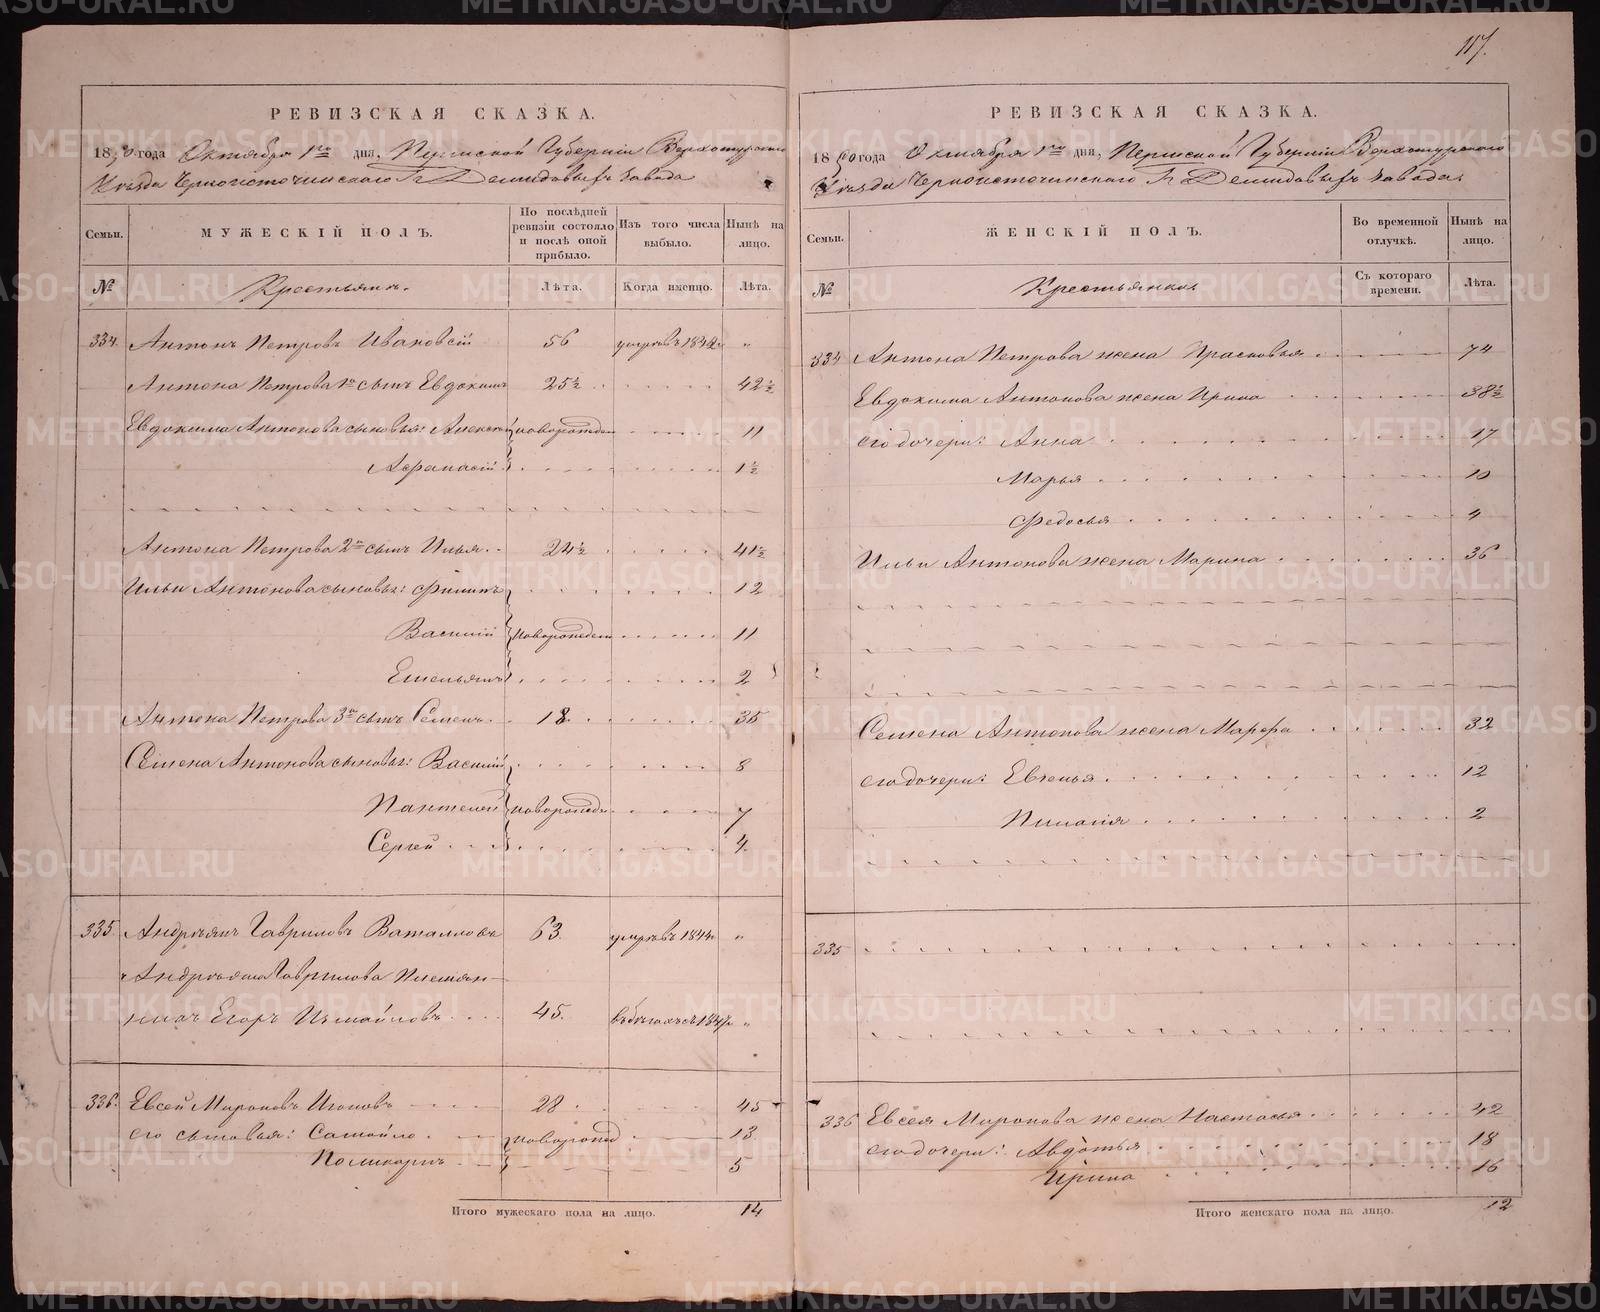 117.
РЕВИЗСКАЯ СКАЗКА.
1850 года Октября 1го дня, Пермской Губернiи Верхотурскаго
Уѣзда Черноисточинскаго Гг Демидовыхъ завода
Семьи.
МУЖЕСКІЙ ПОЛЪ.
По послѣдней ревизіи состояло и послѣ оной прибыло.
Изъ того числа выбыло.
Нынѣ на лицо.
№
Крестьянъ.
Лѣта.
Когда именно.
Лѣта.
334. Антонъ Петровъ Ивановскій 56 умръ въ 1842 "
Антона Петрова 1й сынъ Евдокимъ 25½ 42½
Евдокима Антонова сыновья: новорожден 11
Афанасій 1½
Антона Петрова 2й сынъ Илья 24½ 41½
Ильи Антонова сыновья: Филипъ 12
Василій новорожден 11
Емельянъ 2
Антона Петрова 3й сынъ Семенъ 18 35
Семена Антонова сыновья: Василій 8
Пантелей новорожден 7
Сергей 4
335. Андреянъ Гавриловъ 63. умръ въ 1844 "
Андреяна Гаврилова Племян-
никъ Егоръ Измайловъ 45. въ бѣгахъ съ "
336. Евсей Мироновъ 28 45
его сыновья: Самойло новорожд 13
Поликарпъ 5
Итого мужескаго пола на лицо. 14
РЕВИЗСКАЯ СКАЗКА.
1850 года Октября 1го дня, Пермской Губернiи Верхотурскаго
Уѣзда Черноисточинскаго Гг Демидовыхъ завода.
Семьи.
ЖЕНСКІЙ ПОЛЪ.
Во временной отлучкѣ.
Нынѣ на лицо.
№
Крестьянокъ
Съ котораго времени.
Лѣта.
334 Антона Петрова жена Прасковья 74
Евдокима Антонова жена Ирина 38½
его дочери: Анна 17
Марья 10
Федосья 4
Ильи Антонова жена Марина 36
Семена Антонова жена Марфа 32
его дочери: Евгенья 12
2
335
336 Евсея Миронова жена Настасья 42
его дочери: Авдотья 18
Ирина 16
Итого женскаго пола на лицо. 12
METRIKI.GASO-URAL.RU